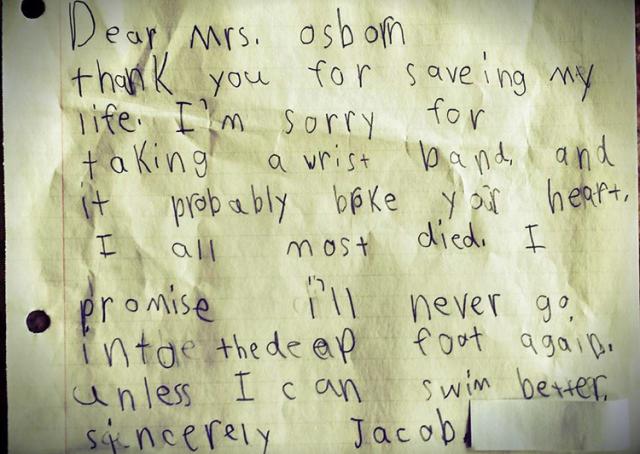 Dear Mrs. osborn
thank you for saveing my
life. I'm sorry for
taking a wrist band. and
it probably boke your heart.
I all most died. I
promise i'll never go
intoe the deap foot again.
unless I can swim better.
sincerely Jacob